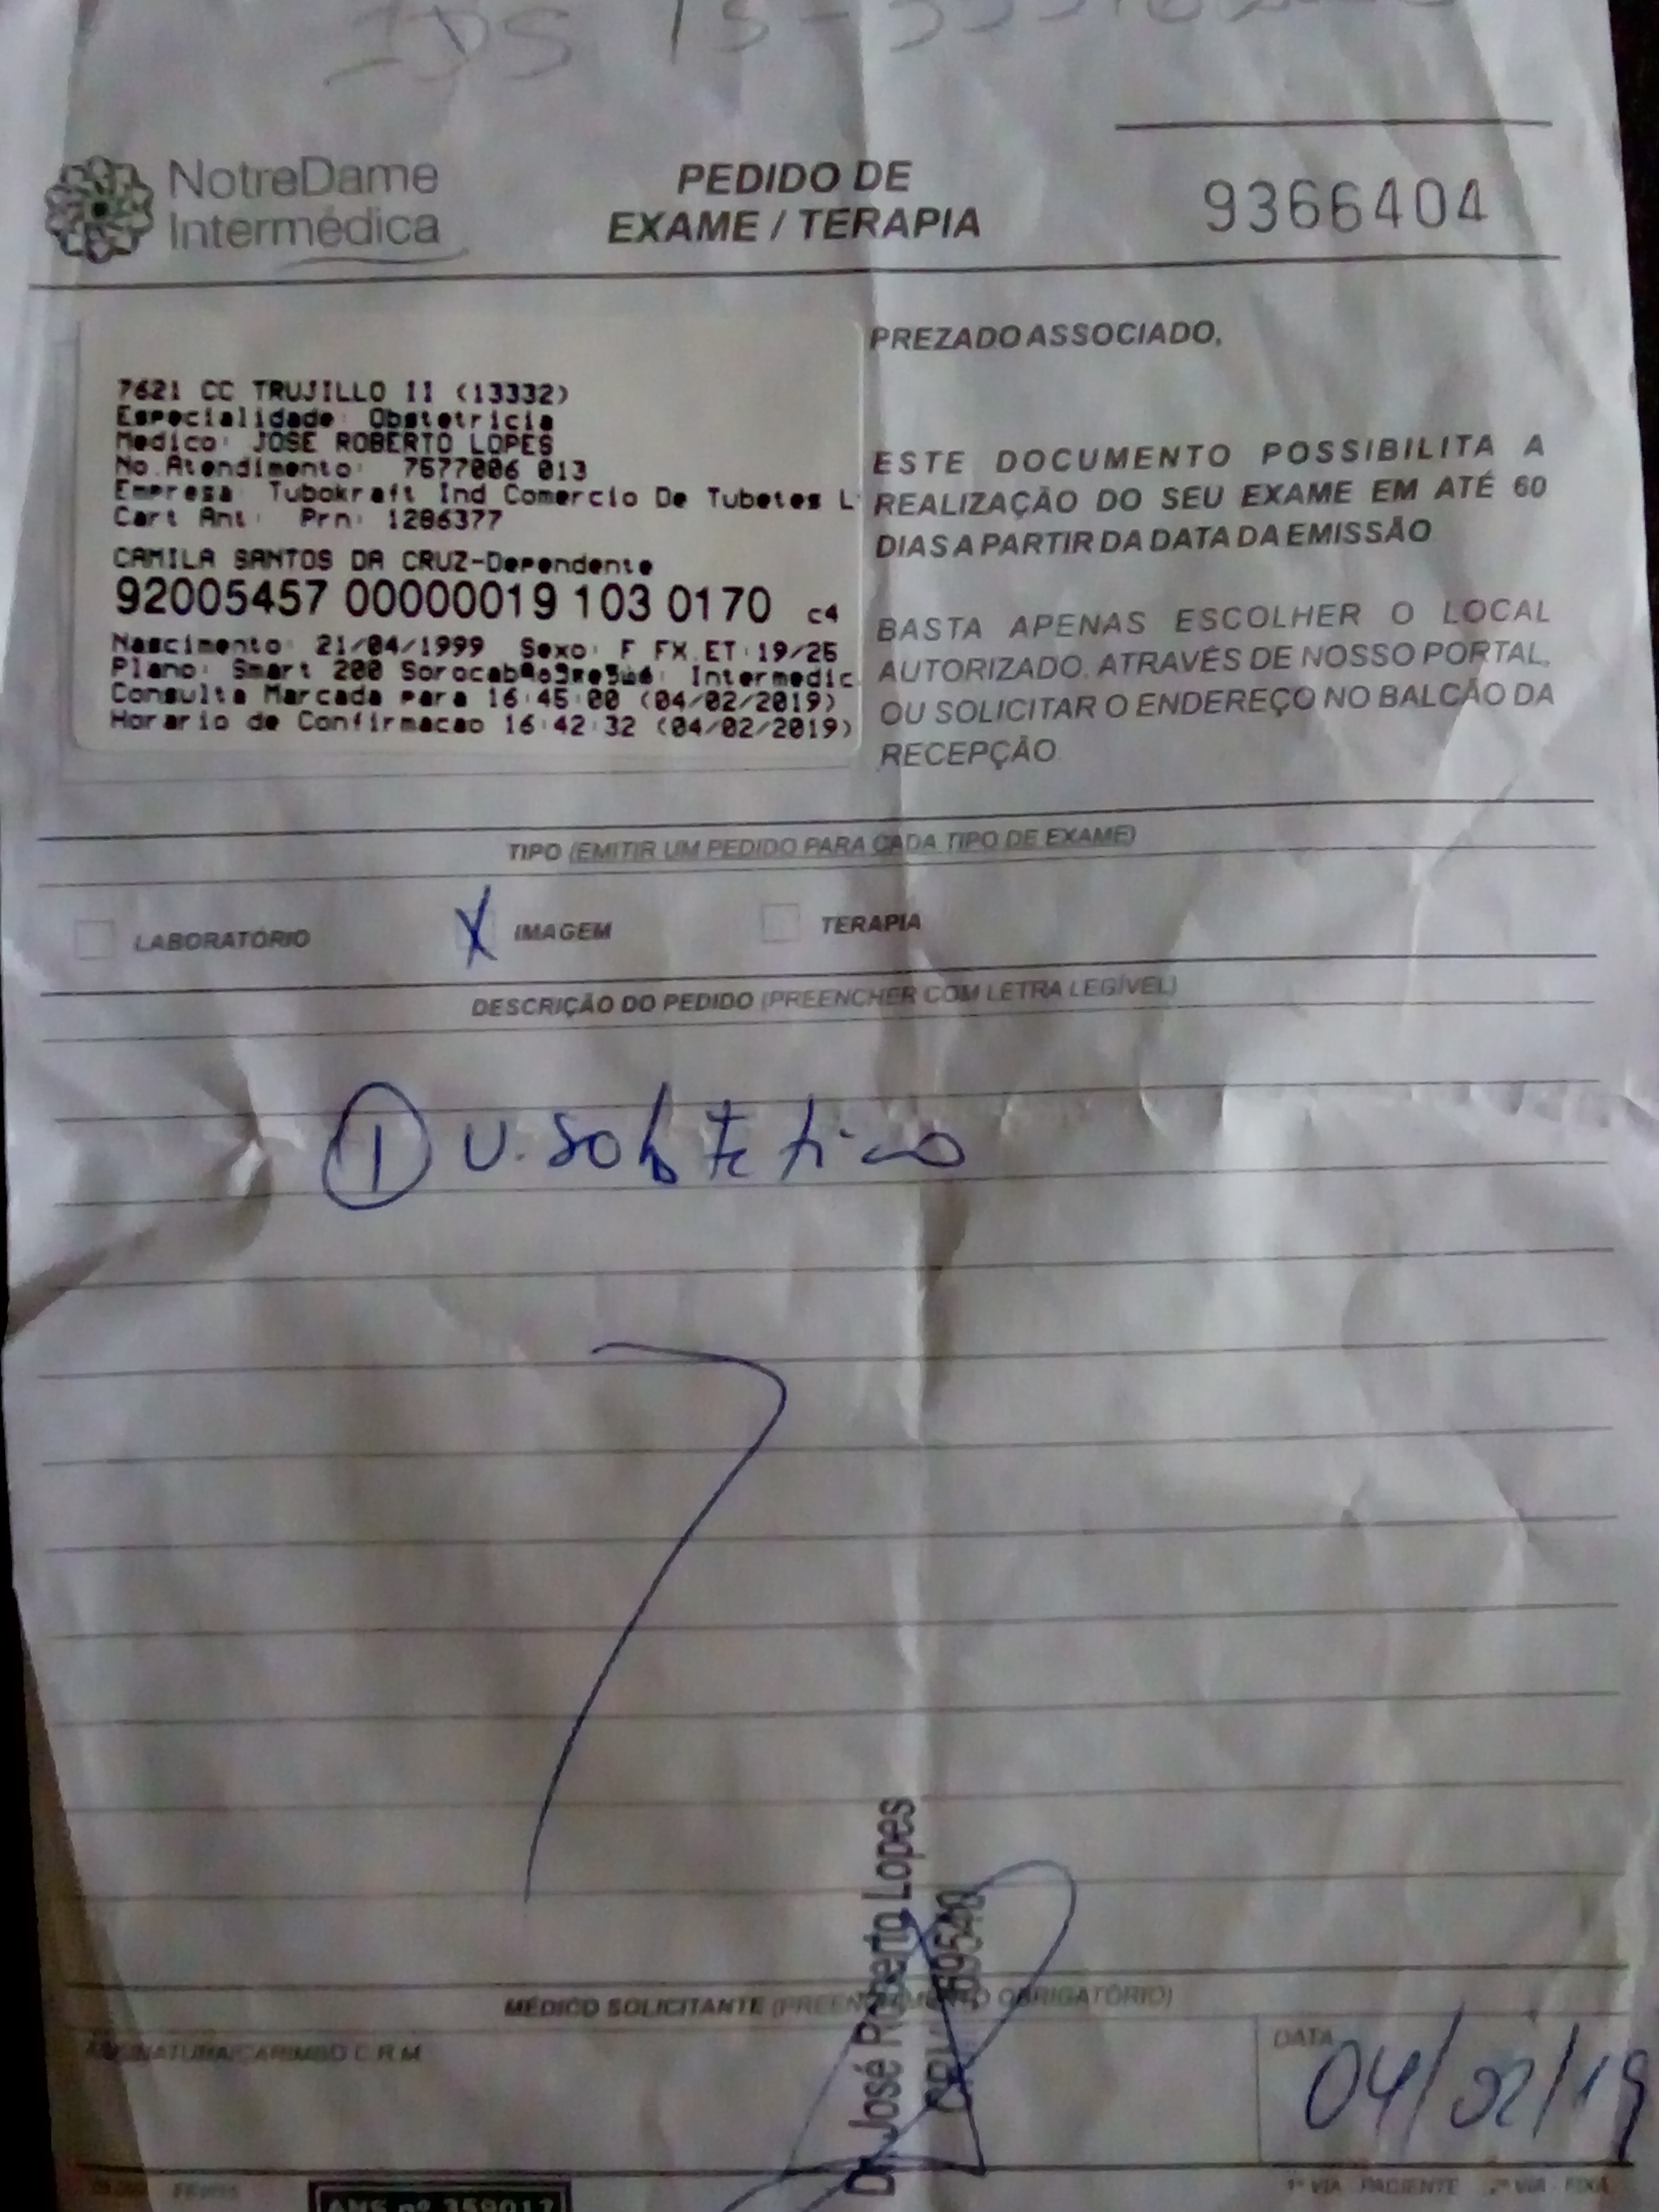 NotreDame
Intermédica
PEDIDO DE
EXAME / TERAPIA
9366404
7621 CC TRUJILLO II (13332)
Especialidade: Obstetricia
Medico: JOSE ROBERTO LOPES
No.Atendimento: 7577006 013
Empresa: Tubokraft Ind Comercio De Tubetes L
Cart Ant: Prn: 1286377
CAMILA SANTOS DA CRUZ-Dependente
92005457 00000019 103 0170 c4
Nascimento: 21/04/1999 Sexo: F FX.ET:19/25
Plano: Smart 200 Intermedic
Consulta Marcada para 16:45:00 (04/02/2019)
Horario de Confirmacao 16:42:32 (04/02/2019)
PREZADO ASSOCIADO,
ESTE DOCUMENTO POSSIBILITA A
REALIZAÇÃO DO SEU EXAME EM ATÉ 60
DIAS A PARTIR DA DATA DA EMISSÃO
BASTA APENAS ESCOLHER O LOCAL
AUTORIZADO, ATRAVÉS DE NOSSO PORTAL,
OU SOLICITAR O ENDEREÇO NO BALCÃO DA
RECEPÇÃO
TIPO (EMITIR UM PEDIDO PARA CADA TIPO DE EXAME)
LABORATÓRIO X IMAGEM TERAPIA
DESCRIÇÃO DO PEDIDO (PREENCHER COM LETRA LEGÍVEL)
1 U.S obstetrico
Dr. José Roberto Lopes
CRM
MÉDICO SOLICITANTE (PREENCHIMENTO OBRIGATÓRIO)
ASSINATURA/CARIMBO C.R.M.
DATA
04/02/19
1ª VIA - PACIENTE 2ª VIA - FIXA
ANS nº 359017